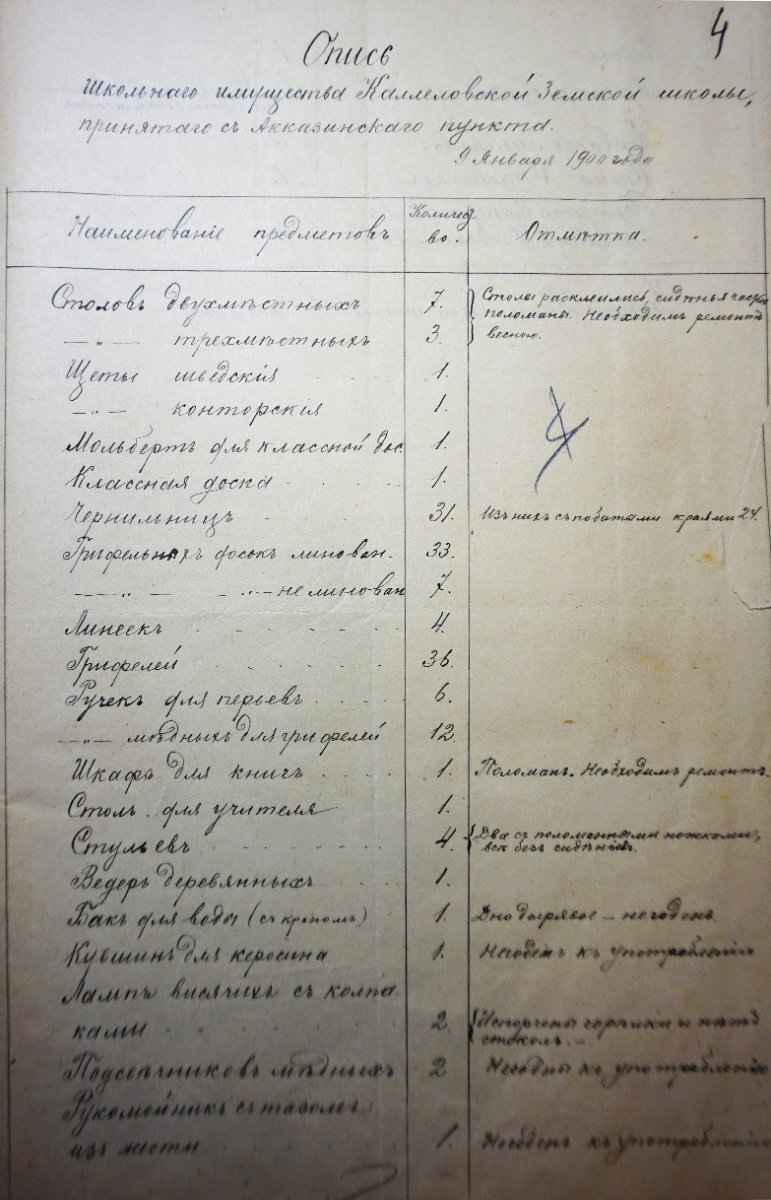 4
Опись
Школьнаго имущества Каллеловской Земской школы,
принятаго съ Акказинскаго пункта.
9 Января 1900 года
Наименованіе предметовъ
Количес
во.
Отмѣтка.
Столовъ двухмѣстныхъ 7. Столы расклеились, сидѣнья
—„— трехмѣстныхъ 3. поломаны. Необходимъ ремонтъ
весною.
Щеты шведскія 1.
—„— конторскія 1.
Мольбертъ для классной дос. 1.
Классная доска 1.
Чернильницъ 31. Изъ нихъ съ побитыми краями 24.
Грифельныхъ досокъ линован. 33.
—„— —„— нелинован 7.
Линеекъ 4.
Грифелей 36.
Ручекъ для перьевъ 6.
—„— мѣдныхъ для грифелей 12.
Шкафъ для книгъ 1. Поломанъ. Необходимъ ремонтъ.
Столъ для учителя 1.
Стульевъ 4. Два съ поломанными ножками,
всѣ безъ сидѣній.
Ведеръ деревянныхъ 1.
Бакъ для воды (съ краномъ) 1. Дно дырявое – негоденъ
Кувшинъ для керосина 1. Негоденъ къ употребленію
Лампъ висячихъ съ колпа-
ками 2. Испорчены горѣлки и нѣтъ
стеколъ. –
Подсвѣчниковъ мѣдныхъ 2 Негодны къ употребленію
Рукомойникъ съ тазомъ
изъ жести 1. Негоденъ къ употребленію